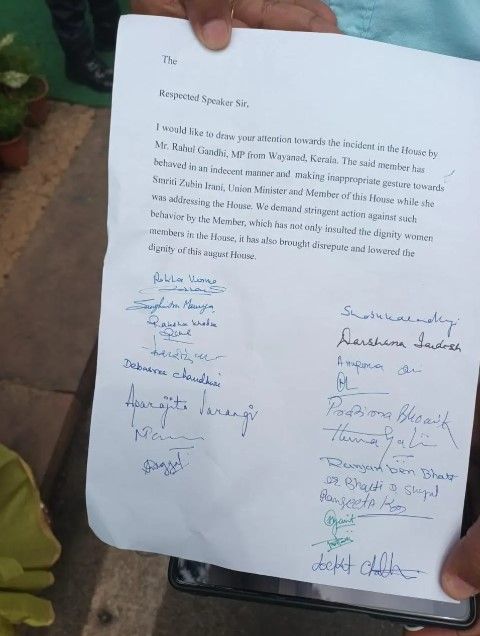 The
Respected Speaker Sir,
I would like to draw your attention towards the incident in the House by
Mr. Rahul Gandhi, MP from Wayanad, Kerala. The said member has
behaved in an indecent manner and making inappropriate gesture towards
Smriti Zubin Irani, Union Minister and Member of this House while she
was addressing the House. We demand stringent action against such
behavior by the Member, which has not only insulted the dignity women
members in the House, it has also brought disrepute and lowered the
dignity of this august House.
Rekha Verma
Sanghmitra Maurya
Raksha Khadse
Debasree Chaudhuri
Aparajita Sarangi
Darshana Jardosh
Annpurna
Pratima Bhoumik
Ranjanben Bhatt
Dr Bharti D Shiyal
Sangeeta
Locket